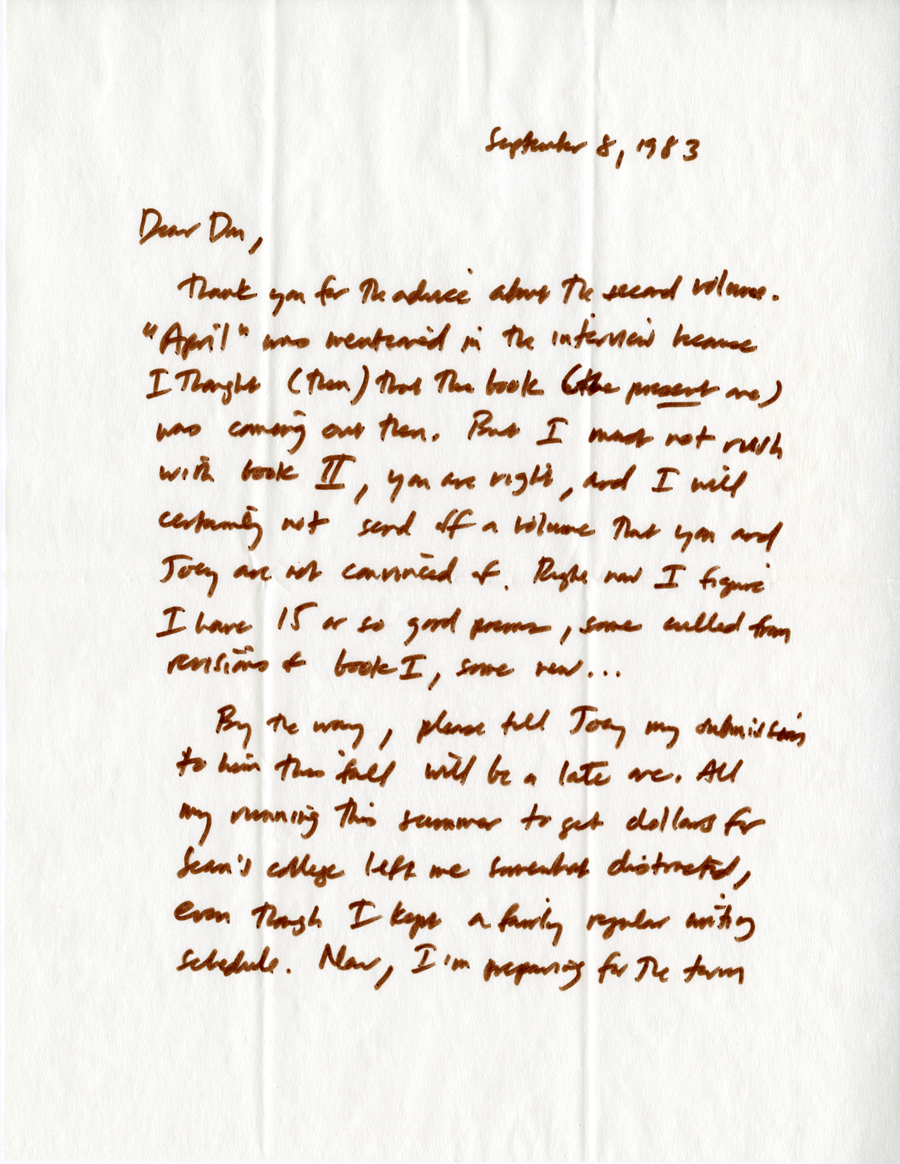 September 8, 1983
Dear Don,
Thank you for the advice about the second volume.
"April" was mentioned in the interview because
I thought (then) that the book (the present one)
was coming out then. But I must not rush
with book II, you are right, and I will
certainly not send off a volume that you and
Joey are not convinced of. Right now I figure
I have 15 or so good poems, some culled from
revisions of book I, some new...
By the way, please tell Joey my submission
to him this fall will be a late one. All
my running this summer to get dollars for
Sean's college left me somewhat distracted,
even though I kept a fairly regular writing
schedule. Now, I'm preparing for the term